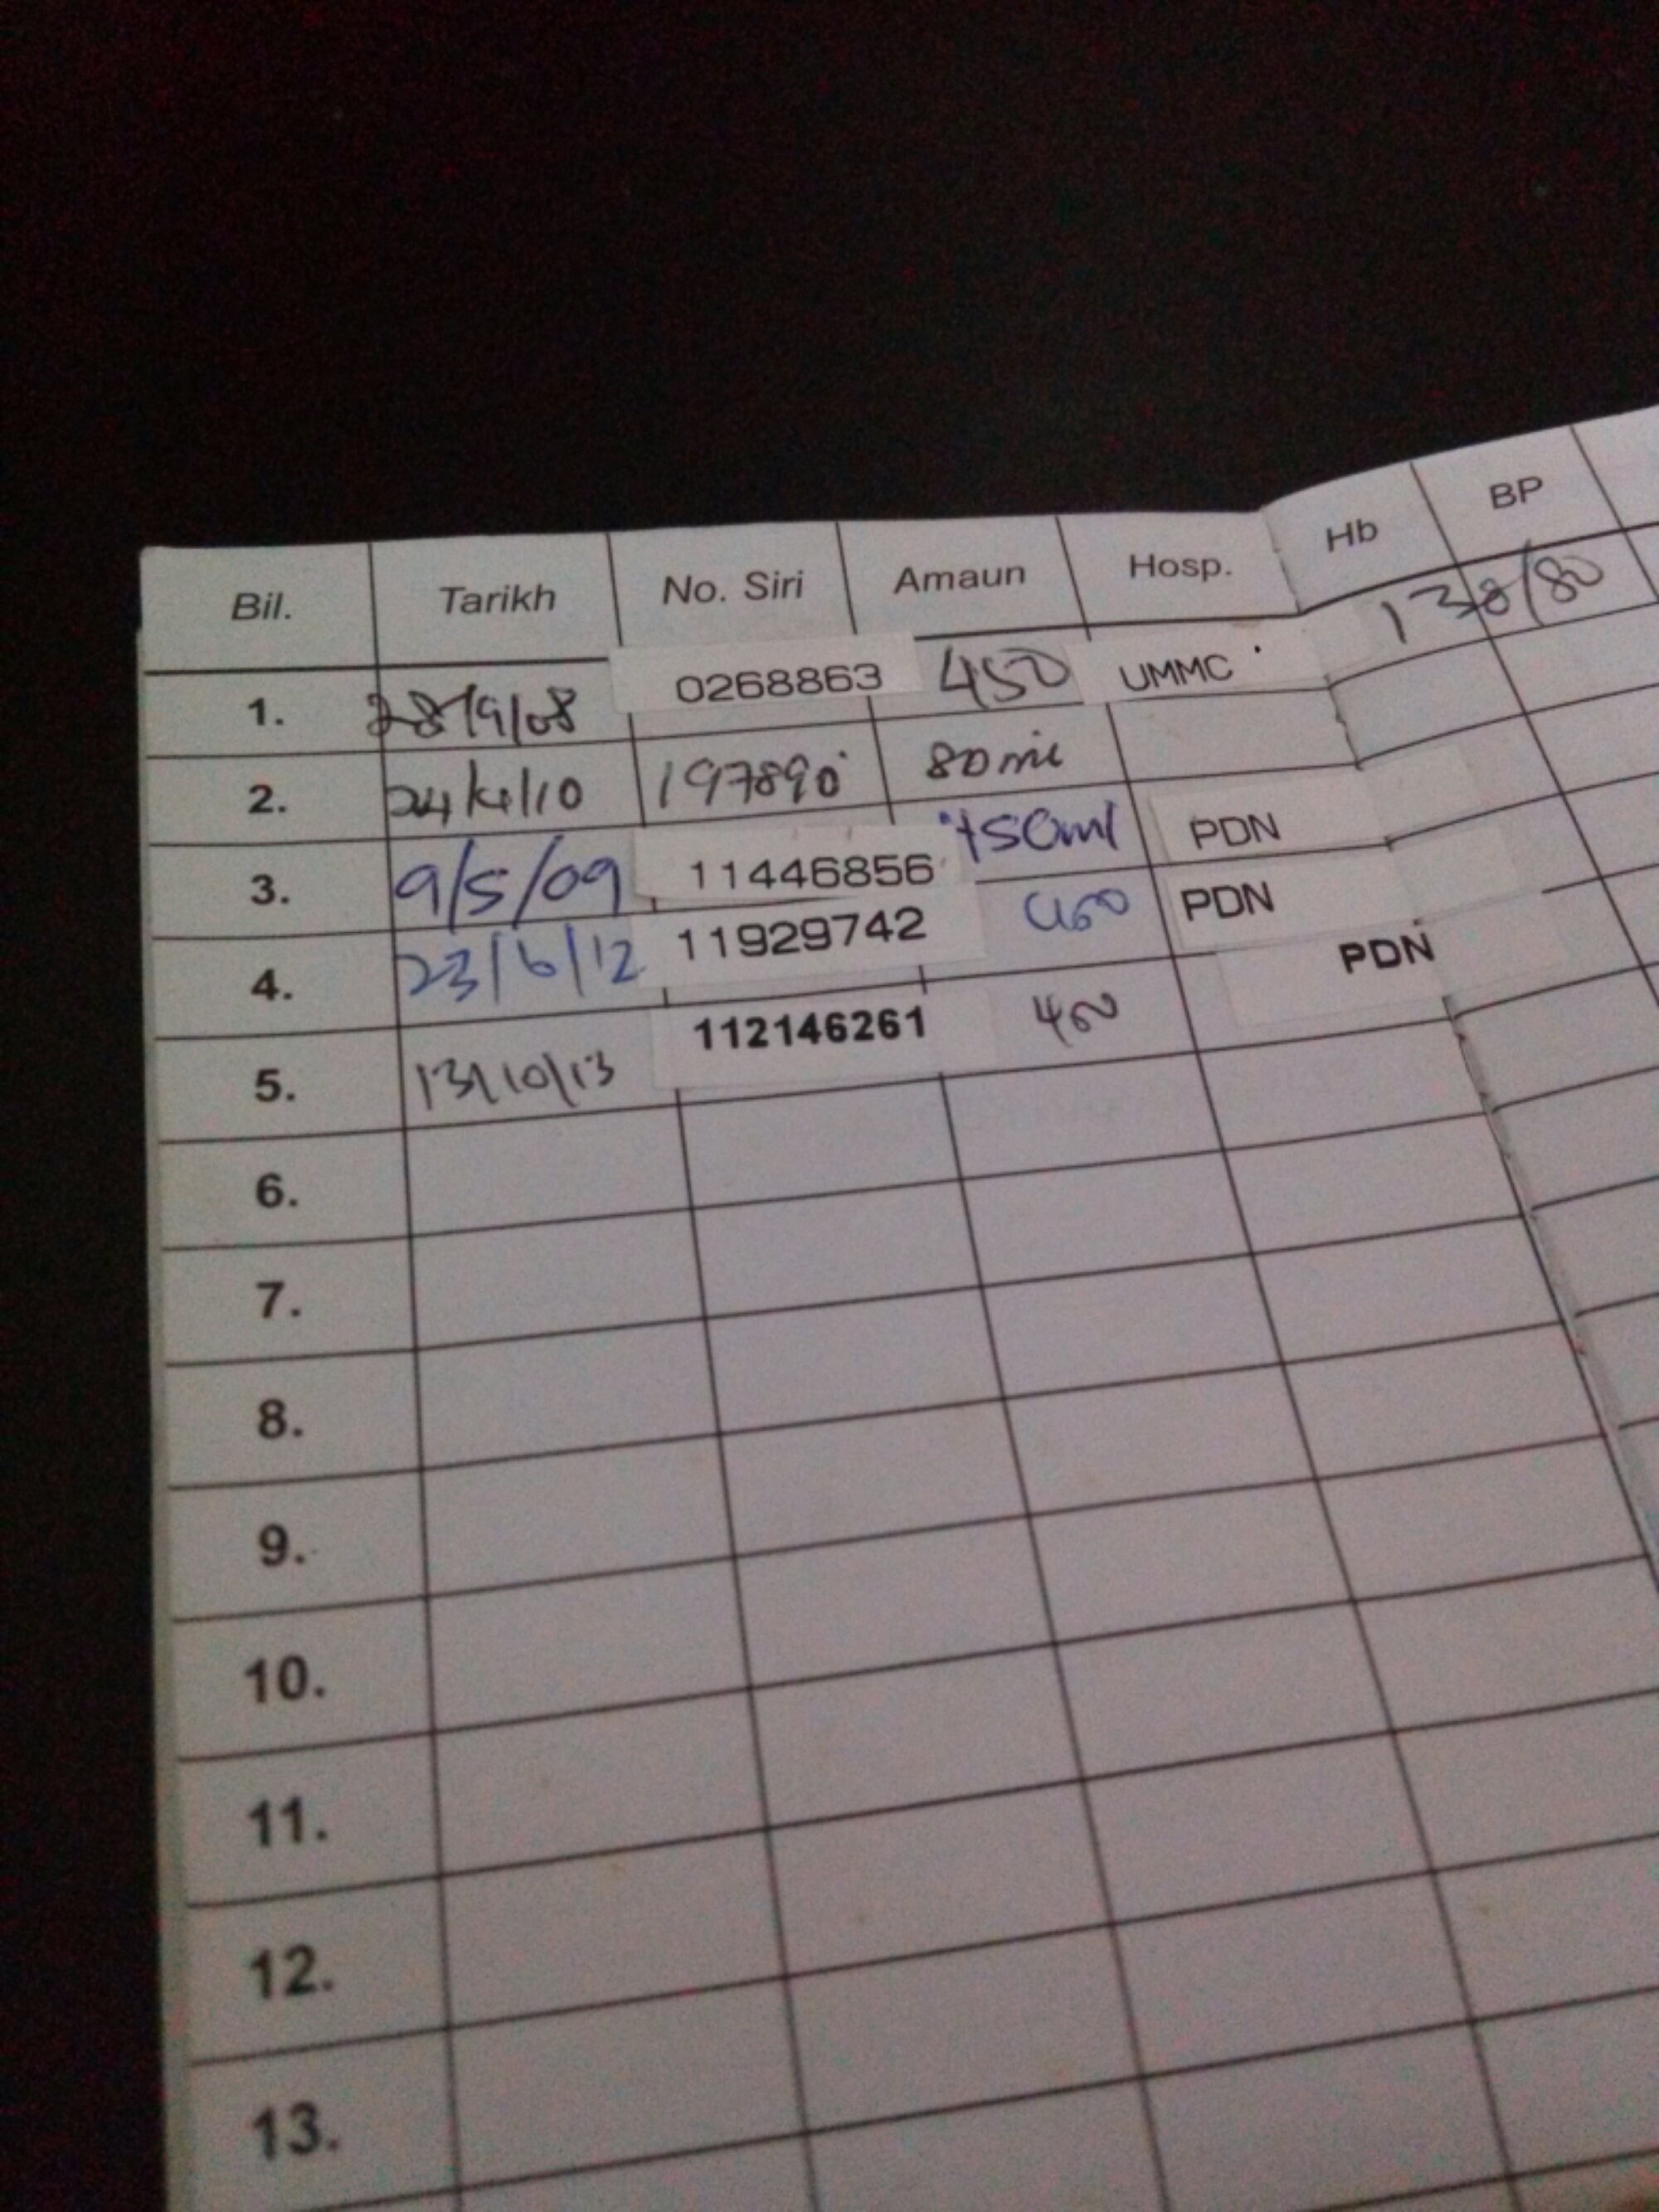 Bil. Tarikh No. Siri Amaun Hosp. Hb BP
1. 28/9/08 0268863 450 UMMC 138/80
2. 24/4/10 197890 80ml
3. 9/5/09 11446856 450ml PDN
4. 23/6/12 11929742 450 PDN
5. 13/10/13 112146261 450 PDN
6.
7.
8.
9.
10.
11.
12.
13.